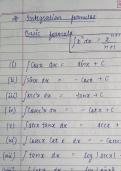 # Integration formulas
Basic formula
∫xⁿdx = xⁿ⁺¹
n+1
(i) ∫cosx dx = sinx + C
(ii) ∫sinx dx = -cosx + C
(iii) ∫sec²x dx = tanx + C
(iv) ∫cosec²x dx = -cotx + C
(v) ∫secx tanx dx = secx + C
(vi) ∫cosecx cot x dx = -cosecx
(vii) ∫tanx dx = log|secx|